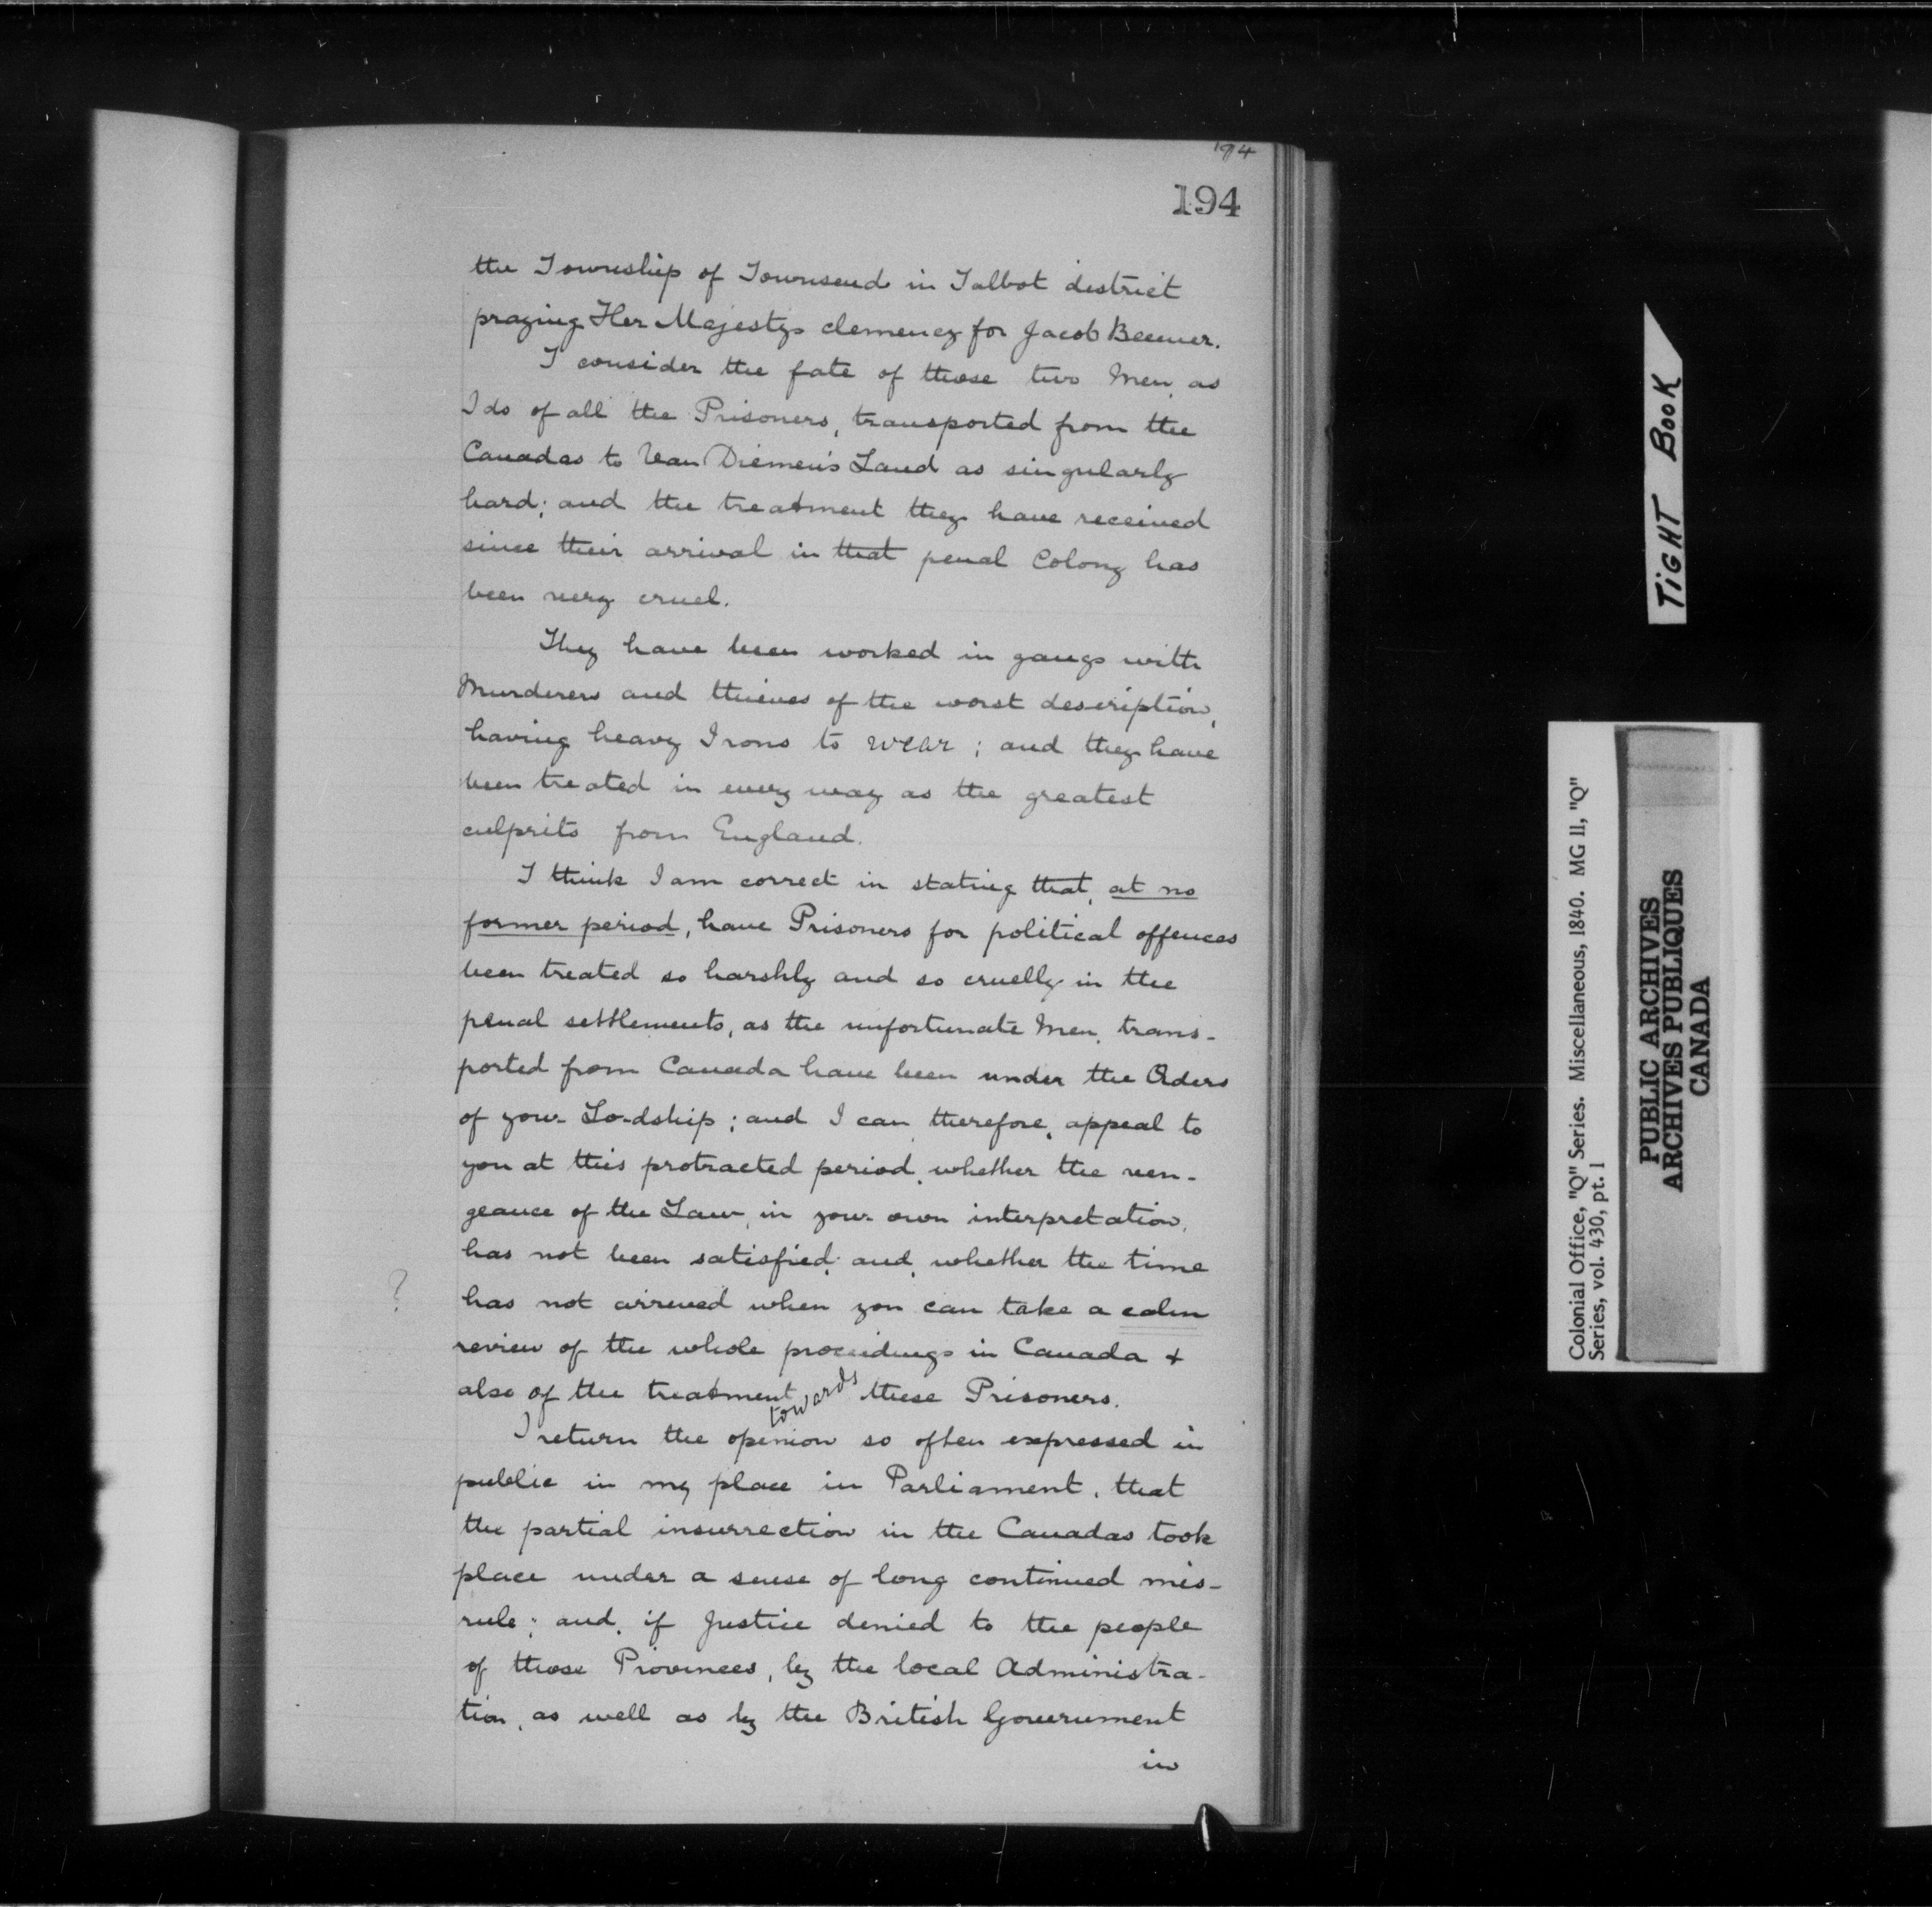 194
194
the Township of Townsend in Talbot district
praying Her Majestys clemency for Jacob Beemer.
I consider the fate of those two Men, as
I do of all the Prisoners, transported from the
Canadas to Van Diemen's Land as singularly
hard; and the treatment they have received
since their arrival in that penal Colony has
been very cruel.
They have been worked in gangs with
Murderers and thieves of the worst description,
having heavy Irons to wear; and they have
been treated in every way as the greatest
culprits from England.
I think I am correct in stating that, at no
former period, have Prisoners for political offences
been treated so harshly and so cruelly in the
penal settlements, as the unfortunate Men, trans-
ported from Canada have been under the Orders
of your Lordship; and I can, therefore, appeal to
you at this protracted period, whether the ven-
geance of the Law, in your own interpretation,
has not been satisfied; and, whether the time
?
has not arrived when you can take a calm
review of the whole proceedings in Canada &
also of the treatment towards these Prisoners.
I return the opinion so often expressed in
public in my place in Parliament, that
the partial insurrection in the Canadas took
place under a sense of long continued mis-
rule; and, if Justice denied to the people
of those Provinces, by the local Administra-
tion, as well as by the British Government
in
TiGHT BOOK
Colonial Office, "Q" Series. Miscellaneous, 1840. MG 11, "Q"
Series, vol. 430, pt. 1
PUBLIC ARCHIVES
ARCHIVES PUBLIQUES
CANADA